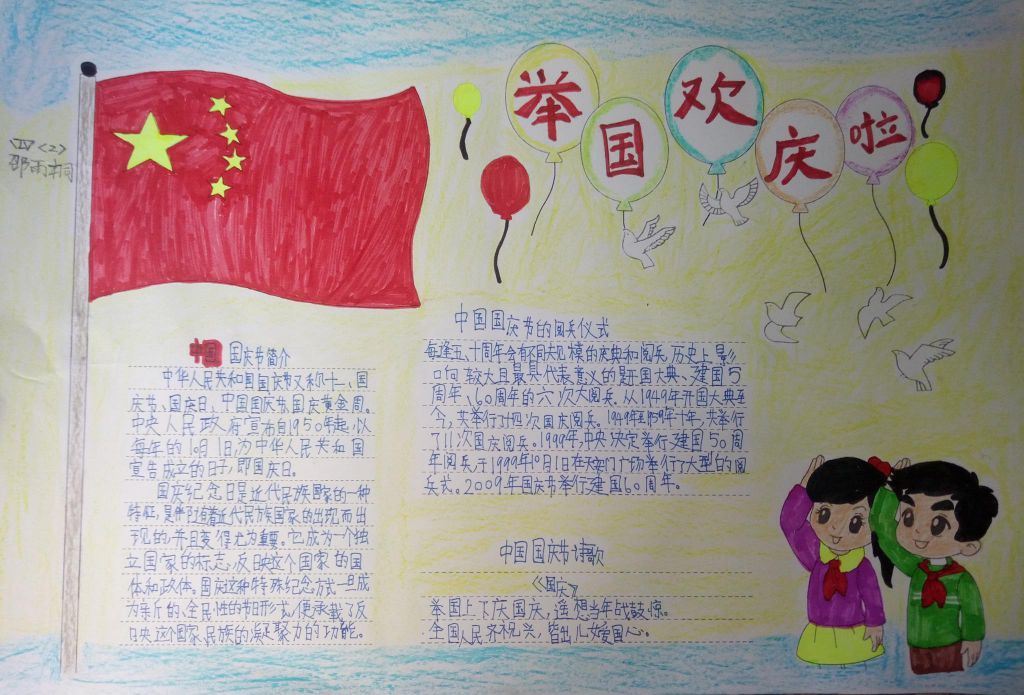 四<2>
邵雨桐
举国欢庆啦
中国 国庆节简介
中华人民共和国国庆节又称十一、国
庆节、国庆日、中国国庆节、国庆黄金周。
中央人民政府宣布自1950年起,以
每年的10月1日,为中华人民共和国
宣告成立的日子,即国庆日。
国庆纪念日是近代民族国家的一种
特征,是伴随着近代民族国家的出现而出
现的,并且变得尤为重要。它成为一个独
立国家的标志,反映这个国家的国
体和政体。国庆这种特殊纪念方式一旦成
为新的、全民性的节日形式,便承载了反
映这个国家、民族的凝聚力的功能。
中国国庆节的阅兵仪式
每逢五、十周年会有不同大规模的庆典和阅兵,历史上影
响较大且最具代表意义的是开国大典、建国5
周年、60周年的六次大阅兵。从1949年开国大典至
今,共举行了十四次国庆阅兵。1949年至1959年十年,共举行
了11次国庆阅兵。1999年,中央决定举行建国50周
年阅兵,于1999年10月1日在天安门广场举行了大型的阅
兵式。2009年国庆节举行建国60周年。
中国国庆节诗歌
《国庆》
举国上下庆国庆,遥想当年战鼓惊。
全国人民齐祝兴,皆出儿女爱国心。